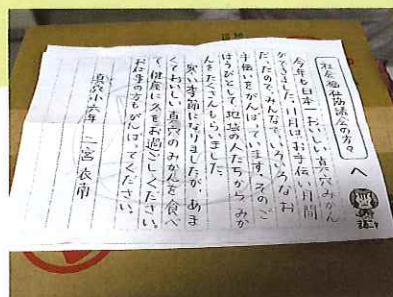 社会福祉協議会の方々
へ
今年も日本一おいしい真穴みかん
ができました。11月はお手伝い月間
だったので、みんなでいろいろなお
手伝いをがんばっています。そのご
ほうびとして、地域の人たちからみか
んをたくさんもらいました。
寒い季節になりましたが、あま
くておいしい真穴のみかんを食べ
て、健康に冬をお過ごしください。
お仕事の方もがんばってください。
真穴小六年 二宮